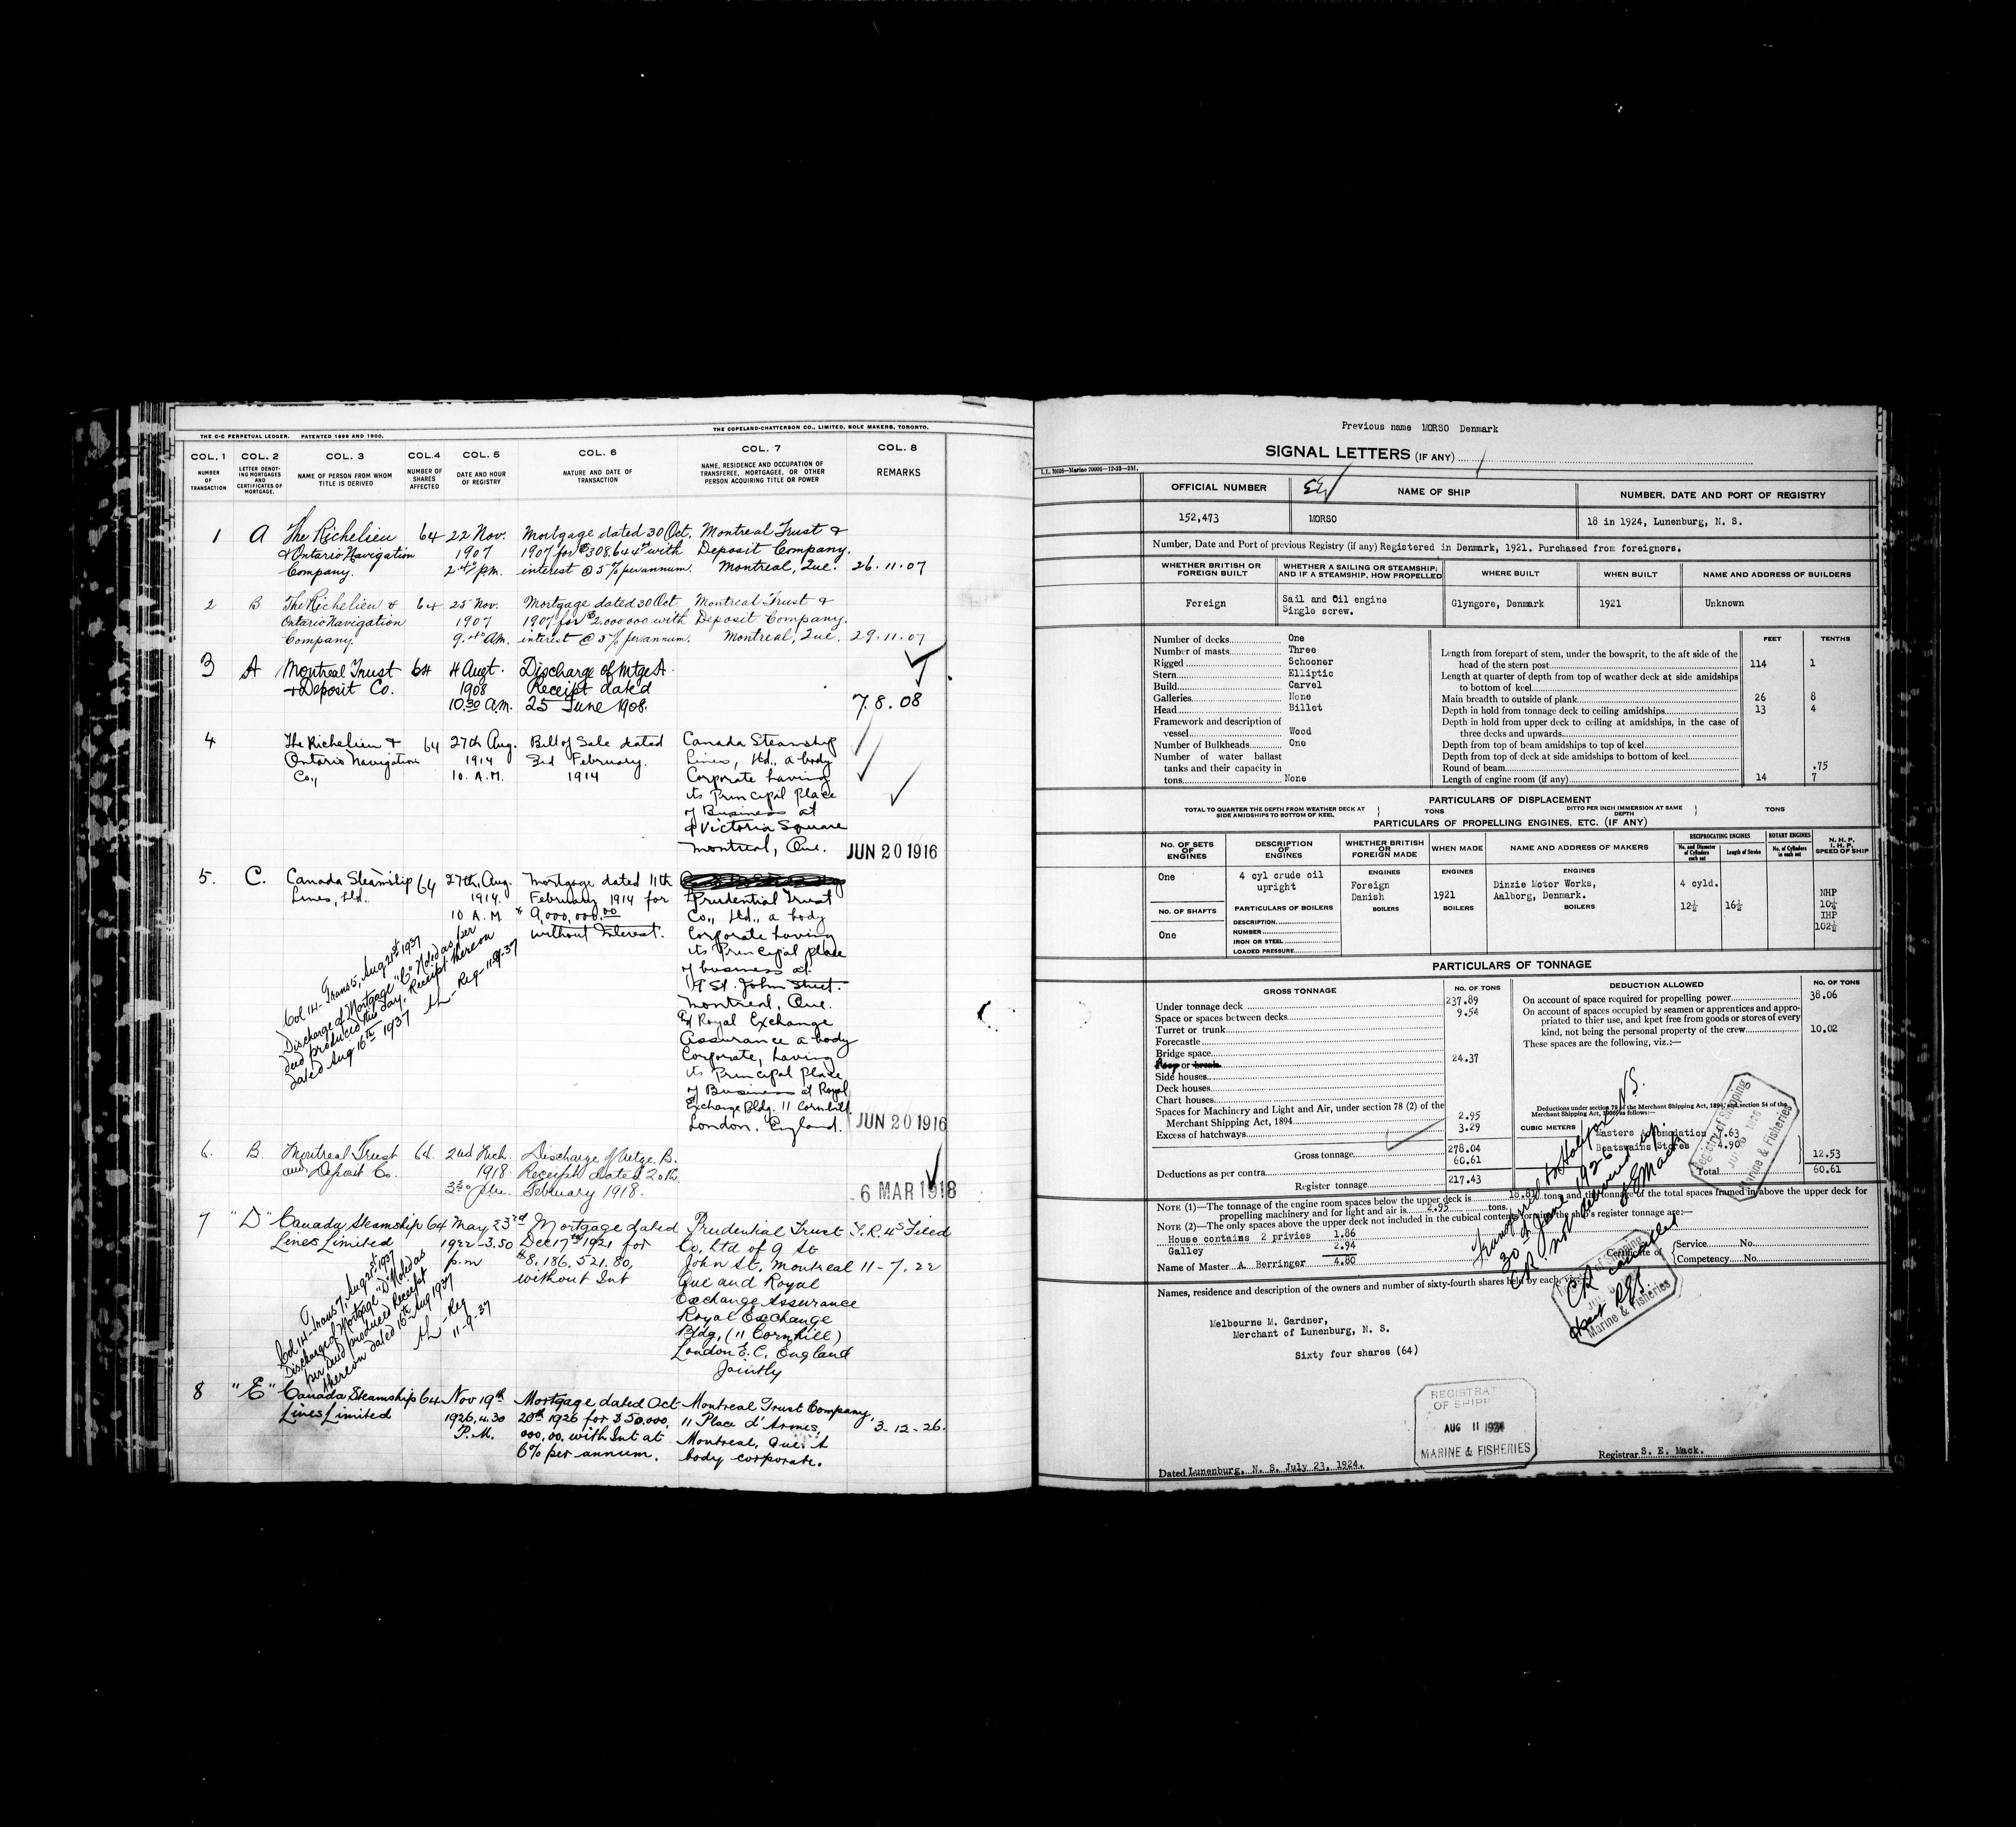 THE C-C PERPETUAL LEDGER. PATENTED 1898 AND 1900.
THE COPELAND-CHATTERSON CO., LIMITED, SOLE MAKERS, TORONTO.
COL. 1 COL. 2 COL. 3 COL. 4 COL. 5 COL. 6 COL. 7 COL. 8
NUMBER OF TRANSACTION
LETTER DENOT-ING MORTGAGES AND CERTIFICATES OF MORTGAGE.
NAME OF PERSON FROM WHOM TITLE IS DERIVED
NUMBER OF SHARES AFFECTED
DATE AND HOUR OF REGISTRY
NATURE AND DATE OF TRANSACTION
NAME, RESIDENCE AND OCCUPATION OF TRANSFEREE, MORTGAGEE, OR OTHER PERSON ACQUIRING TITLE OR POWER
REMARKS
1 A The Richelieu 64 22 Nov. Mortgage dated 30 Oct. Montreal Trust &
& Ontario Navigation 1907 1907 for $308,644 with Deposit Company.
Company. 2.40 p.m. interest @ 5% per annum. Montreal, Que. 26.11.07
2 B The Richelieu & 64 25 Nov. Mortgage dated 30 Oct. Montreal Trust &
Ontario Navigation 1907 1907 for $2,000000 with Deposit Company.
Company. 9.40 A.M. interest @ 5% per annum. Montreal, Que. 29.11.07
3 A Montreal Trust 64 4 Augt. Discharge of Mtge A.
+ Deposit Co. 1908 Receipt dated
10.30 A.M. 25 June 1908. 7.8.08
4 The Richelieu & 64 27th Aug. Bill of Sale dated Canada Steamship
Ontario Navigation 1914 3rd February. Lines, Ltd., a body
Co., 10. A.M. 1914 Corporate having
its Principal Place
of Business at
Victoria Square
Montreal, Que. JUN 20 1916
5. C. Canada Steamship 64 27th, Aug. Mortgage dated 11th
Lines, Ltd. 1914. February 1914 for Prudential Trust
10 A.M $9,000,000.00 Co., Ltd., a body
without Interest. Corporate having
its Principal place
of business at
9 St. John Street.
Montreal, Que.
& Royal Exchange
Assurance a body
Corporate, having
its Principal Place
of Business at Royal
Exchange Bldg. 11 Cornhill.
London, England. JUN 20 1916
Col 14- Trans 15, Aug 21st 1937
Discharge of Mortgage "C" Noted as per
deed produced this day. Receipt thereon
dated Aug 16th 1937 Reg- 11-9-37
6. B. Montreal Trust 64. 2nd Mch. Discharge of Mtge. B.
and Deposit Co. 1918. Receipt dated 20th.
3.30 p.m. February 1918. 6 MAR 1918
7 "D" Canada Steamship 64 May 23rd Mortgage dated Prudential Trust T.R.4s Filed
Lines Limited 1922-3.50 Dec 17th 1921 for Co. Ltd of 9 St
p.m $8,186,521.80, John St, Montreal 11-7.22
without Int Que and Royal
Exchange Assurance
Royal Exchange
Bldg, (11 Cornhill)
London E.C. England
Jointly
Col 14- Trans 17, Aug 21st 1937
Discharge of Mortgage "D" Noted as
per deed produced Receipt
thereon dated 16th Aug 1937
Reg
11-9-37
8 "E" Canada Steamship 64 Nov 19th Mortgage dated Oct Montreal Trust Company,
Lines Limited 1926, 4.30 20th 1926 for $50,000, 11 Place d'Armes, 3-12-26.
P.M. 000,00, with Int at Montreal, Que. A
6% per annum. body corporate.
Previous name MORSO Denmark
SIGNAL LETTERS (IF ANY)
OFFICIAL NUMBER NAME OF SHIP NUMBER, DATE AND PORT OF REGISTRY
152,473 MORSO 18 in 1924, Lunenburg, N. S.
Number, Date and Port of previous Registry (if any) Registered in Denmark, 1921. Purchased from foreigners.
WHETHER BRITISH OR FOREIGN BUILT
WHETHER A SAILING OR STEAMSHIP; AND IF A STEAMSHIP, HOW PROPELLED
WHERE BUILT WHEN BUILT NAME AND ADDRESS OF BUILDERS
Foreign Sail and Oil engine Single screw. Glyngore, Denmark 1921 Unknown
FEET TENTHS
Number of decks One
Number of masts Three
Rigged Schooner
Stern Elliptic
Build Carvel
Galleries None
Head Billet
Framework and description of
vessel Wood
Number of Bulkheads One
Number of water ballast
tanks and their capacity in
tons None
Length from forepart of stem, under the bowsprit, to the aft side of the
head of the stern post 114 1
Length at quarter of depth from top of weather deck at side amidships
to bottom of keel
Main breadth to outside of plank 26 8
Depth in hold from tonnage deck to ceiling amidships 13 4
Depth in hold from upper deck to ceiling at amidships, in the case of
three decks and upwards
Depth from top of beam amidships to top of keel
Depth from top of deck at side amidships to bottom of keel
Round of beam .75
Length of engine room (if any) 14 7
PARTICULARS OF DISPLACEMENT
TOTAL TO QUARTER THE DEPTH FROM WEATHER DECK AT SIDE AMIDSHIPS TO BOTTOM OF KEEL } TONS DITTO PER INCH IMMERSION AT SAME DEPTH } TONS
PARTICULARS OF PROPELLING ENGINES, ETC. (IF ANY)
NO. OF SETS OF ENGINES
DESCRIPTION OF ENGINES
WHETHER BRITISH OR FOREIGN MADE
WHEN MADE
NAME AND ADDRESS OF MAKERS
RECIPROCATING ENGINES ROTARY ENGINES
No. and Diameter of Cylinders each set
Length of Stroke
No. of Cylinders in each set
N. H. P. I. H. P. SPEED OF SHIP
One 4 cyl crude oil upright
ENGINES ENGINES ENGINES
Foreign Danish 1921 Dinzie Motor Works, Aalborg, Denmark. 4 cyld.
NO. OF SHAFTS PARTICULARS OF BOILERS BOILERS BOILERS BOILERS
12½ 16½ NHP 10¼ IHP 102½
One
DESCRIPTION
NUMBER
IRON OR STEEL
LOADED PRESSURE
PARTICULARS OF TONNAGE
GROSS TONNAGE NO. OF TONS
Under tonnage deck 237.89
Space or spaces between decks 9.54
Turret or trunk
Forecastle
Bridge space
Poop or break 24.37
Side houses
Deck houses
Chart houses
Spaces for Machinery and Light and Air, under section 78 (2) of the
Merchant Shipping Act, 1894 2.95
Excess of hatchways 3.29
Gross tonnage 278.04
Deductions as per contra 60.61
Register tonnage 217.43
DEDUCTION ALLOWED NO. OF TONS
On account of space required for propelling power 38.06
On account of spaces occupied by seamen or apprentices and appro-
priated to thier use, and kpet free from goods or stores of every
kind, not being the personal property of the crew 10.02
These spaces are the following, viz.:—
Deductions under section 79 of the Merchant Shipping Act, 1894, and section 54 of the
Merchant Shipping Act, 1906, as follows:—
CUBIC METERS
Masters Accomodation 7.63
Boatswains Stores 4.90
12.53
Total 60.61
Registry of Shipping
Marine & Fisheries
NOTE (1)—The tonnage of the engine room spaces below the upper deck is 18.81 tons, and the tonnage of the total spaces framed in above the upper deck for
propelling machinery and for light and air is 2.95 tons.
NOTE (2)—The only spaces above the upper deck not included in the cubical contents forming the ship's register tonnage are:—
House contains 2 privies 1.86
Galley 2.94
4.80
Name of Master A. Berringer
Certificate of { Service No.
Competency No.
Transferred to Halifax N.S.
30th June 1926
C.R. not delivered up.
S E Mack
CR cancelled
Registry of Shipping
Marine & Fisheries
Names, residence and description of the owners and number of sixty-fourth shares held by each, viz.
Melbourne M. Gardner,
Merchant of Lunenburg, N. S.
Sixty four shares (64)
REGISTRAR OF SHIPP
AUG 11 1924
MARINE & FISHERIES
Dated Lunenburg, N. S. July 23, 1924.
Registrar S. E. Mack.